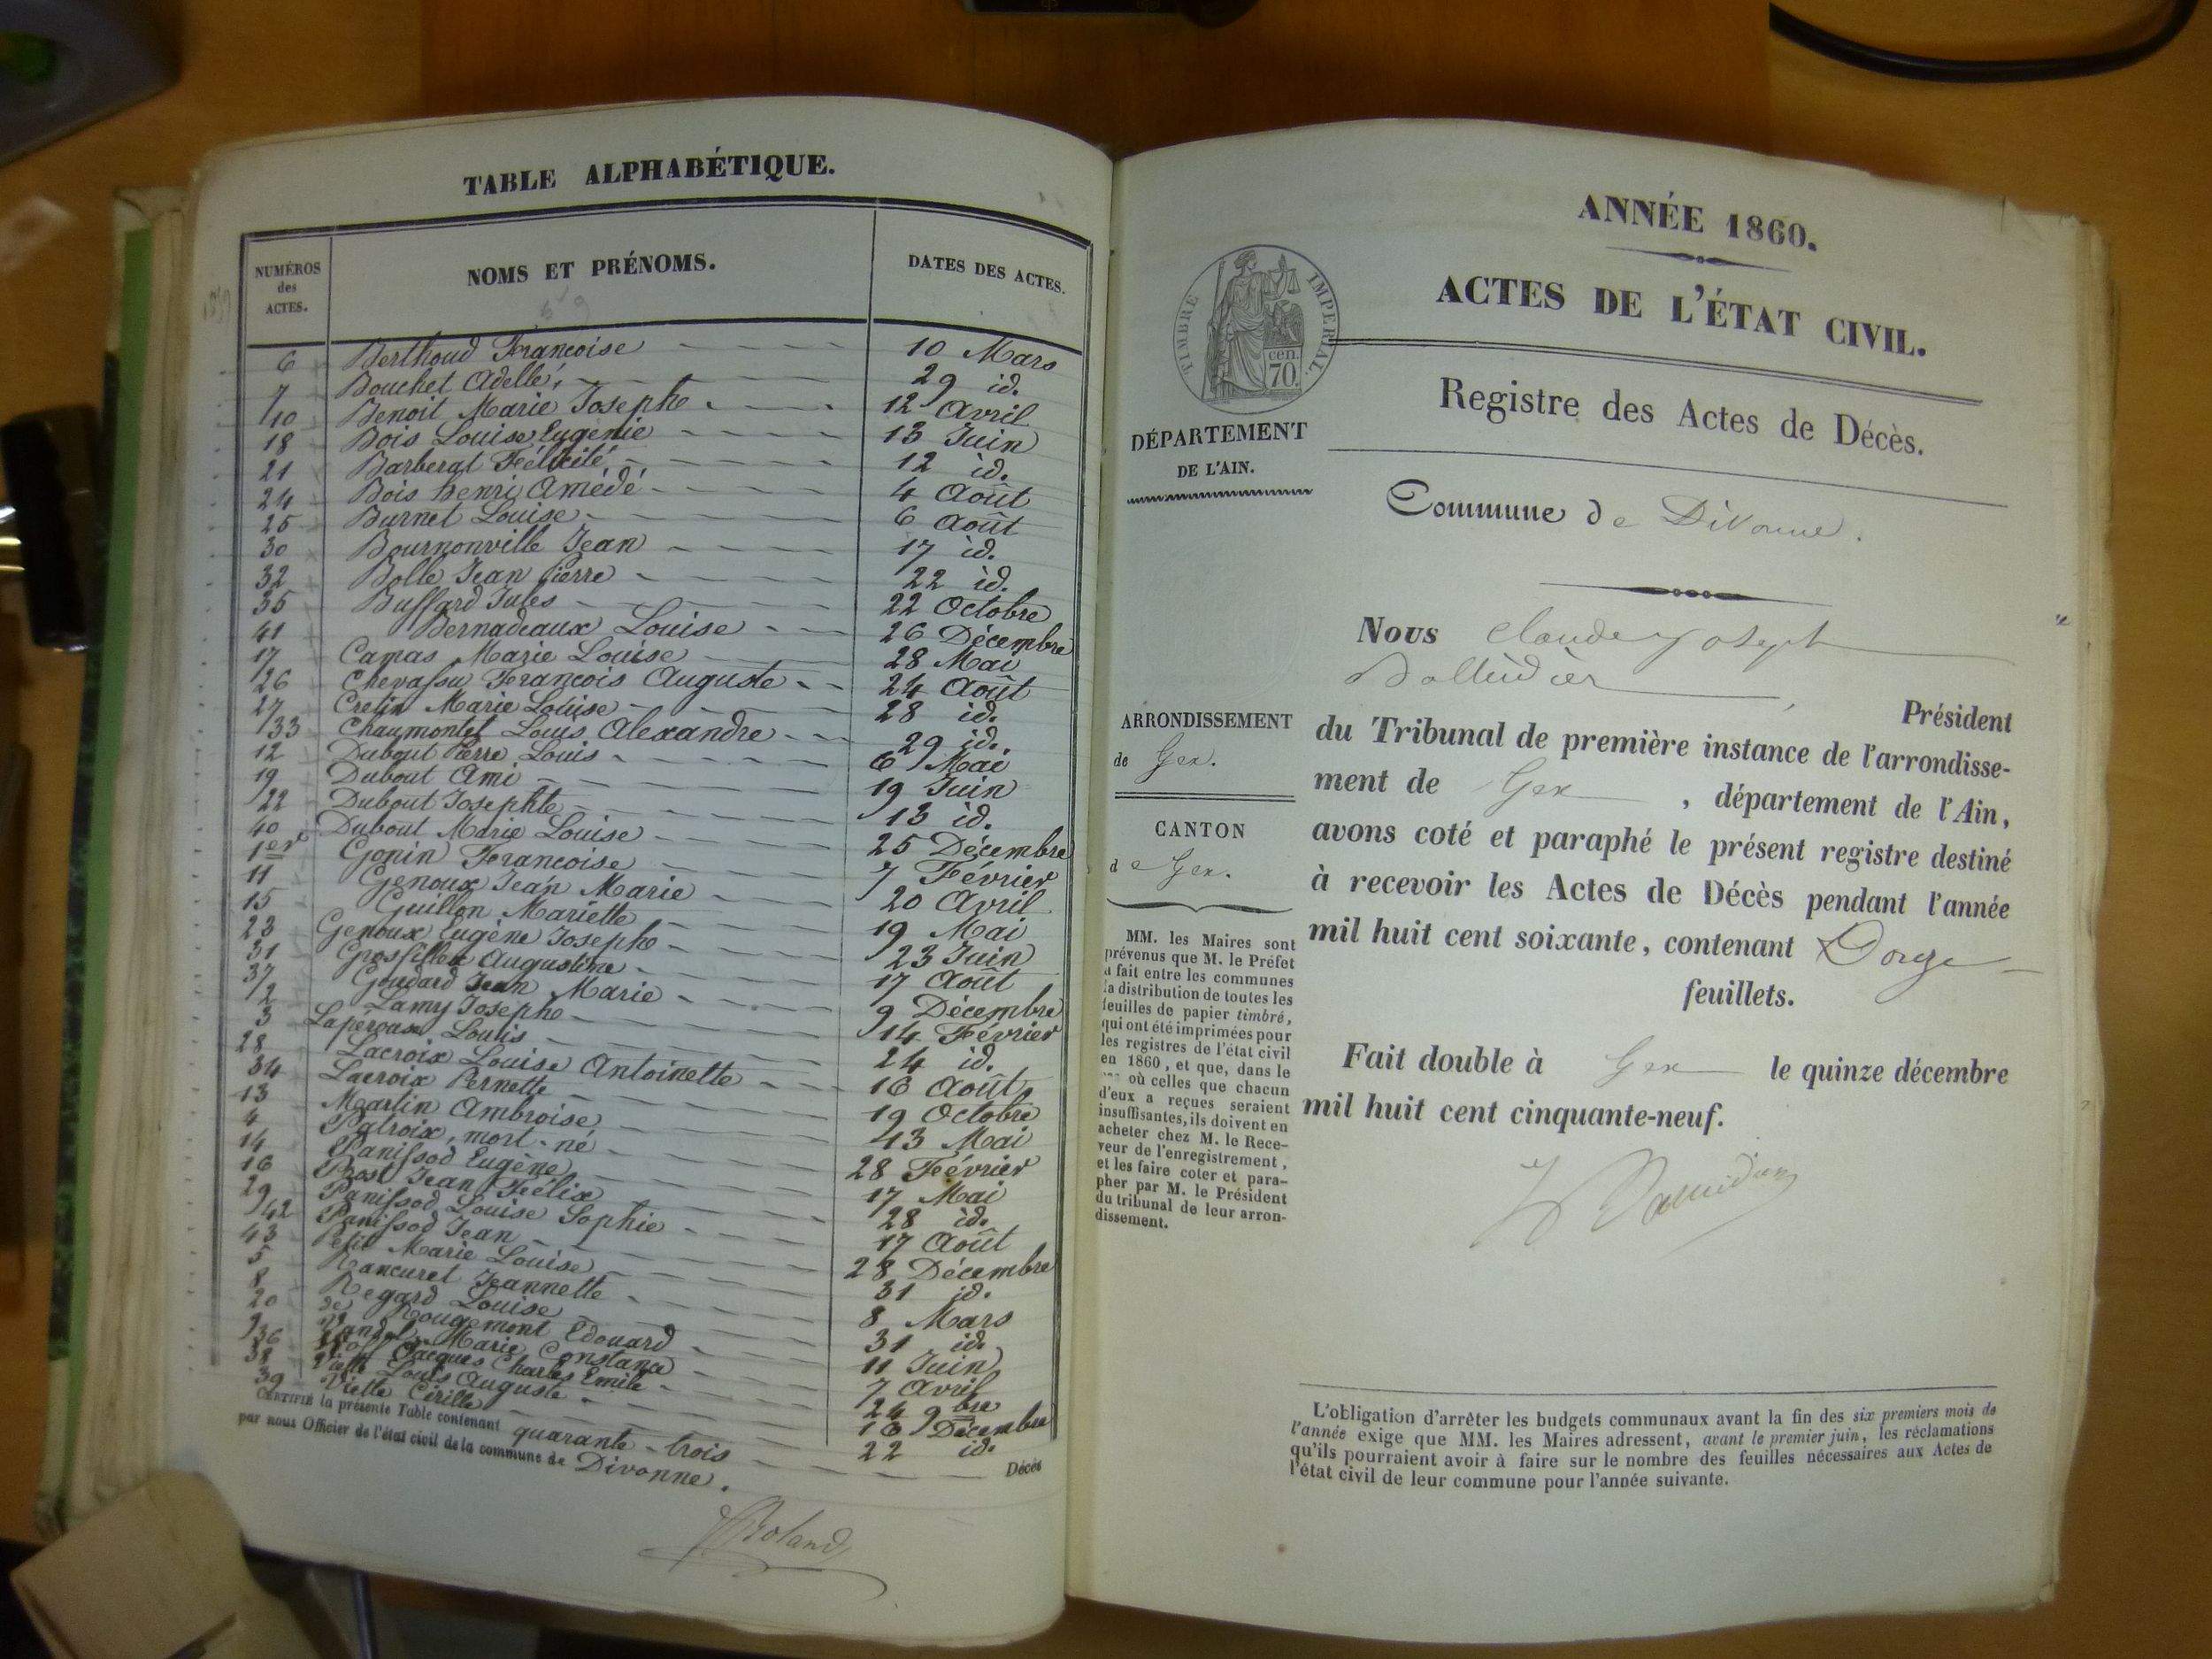 TABLE ALPHABÉTIQUE.
NUMÉROS des ACTES. NOMS ET PRÉNOMS. DATES DES ACTES.
6 Berthoud Françoise 10 Mars
7 Bouchet Adelle 29 id.
10 Benoit Marie Josephe 12 Avril
18 Bois Louise Eugenie 13 Juin
21 Barberat Félicité 12 id.
24 Bois henri Amédé 4 Août
25 Burnet Louise 6 Août
30 Bournonville Jean 17 id.
32 Bolle Jean Pierre 22 id.
35 Buffard Jules 22 Octobre
41 Bernadeaux Louise 26 Décembre
17 Camas Marie Louise 28 Mai
26 Chevassu François Auguste 24 Août
27 Cretin Marie Louise 28 id.
33 Chaumontet Louis Alexandre 29 id.
12 Dubout Pierre Louis 6 Mai
19 Dubout Ami 19 Juin
22 Dubout Josephte 13 id.
40 Dubout Marie Louise 25 Décembre
1er Gonin Françoise 7 Février
11 Genoux Jean Marie 20 Avril
15 Guillon Mariette 19 Mai
23 Genoux Eugène Josephe 23 Juin
31 Grosfillex Augustine 17 Août
37 Goudard Jean Marie 9 Décembre
2 Lamy Josephe 14 Février
3 Lapéroux Louis 24 id.
28 Lacroix Louise Antoinette 16 Août
34 Lacroix Pernette 19 Octobre
13 Martin Ambroise 13 Mai
4 Patroix, mort-né 28 Février
14 Panissod Eugène 17 Mai
16 Post Jean Félix 28 id.
29 Panissod Louise Sophie 17 Août
42 Panissod Jean 28 Décembre
43 Petit Marie Louise 31 id.
5 Rancuret Jeannette 8 Mars
8 Regard Louise 31 id.
20 de Rougemont Edouard 11 Juin
9 Marie Constance 7 Avril
36 Jacques Charles Emile 24 9bre
38 Viette Louis Auguste 16 Décembre
39 Viette Cirille 22 id.
CERTIFIÉ la présente Table contenant quarante-trois Décès
par nous Officier de l'état civil de la commune de Divonne.
Roland
ANNÉE 1860.
ACTES DE L'ÉTAT CIVIL.
Registre des Actes de Décès.
TIMBRE IMPERIAL.
cen.
70.
DÉPARTEMENT
DE L'AIN.
Commune de Divonne.
ARRONDISSEMENT
de Gex.
CANTON
de Gex.
MM. les Maires sont
prévenus que M. le Préfet
a fait entre les communes
la distribution de toutes les
feuilles de papier timbré,
qui ont été imprimées pour
les registres de l'état civil
en 1860, et que, dans le
où celles que chacun
d'eux a reçues seraient
insuffisantes, ils doivent en
acheter chez M. le Rece-
veur de l'enregistrement,
et les faire coter et para-
pher par M. le Président
du tribunal de leur arron-
dissement.
Nous Claude Joseph
, Président
du Tribunal de première instance de l'arrondisse-
ment de Gex, département de l'Ain,
avons coté et paraphé le présent registre destiné
à recevoir les Actes de Décès pendant l'année
mil huit cent soixante, contenant Douze
feuillets.
Fait double à Gex le quinze décembre
mil huit cent cinquante-neuf.
L'obligation d'arrêter les budgets communaux avant la fin des six premiers mois de
l'année exige que MM. les Maires adressent, avant le premier juin, les réclamations
qu'ils pourraient avoir à faire sur le nombre des feuilles nécessaires aux Actes de
l'état civil de leur commune pour l'année suivante.